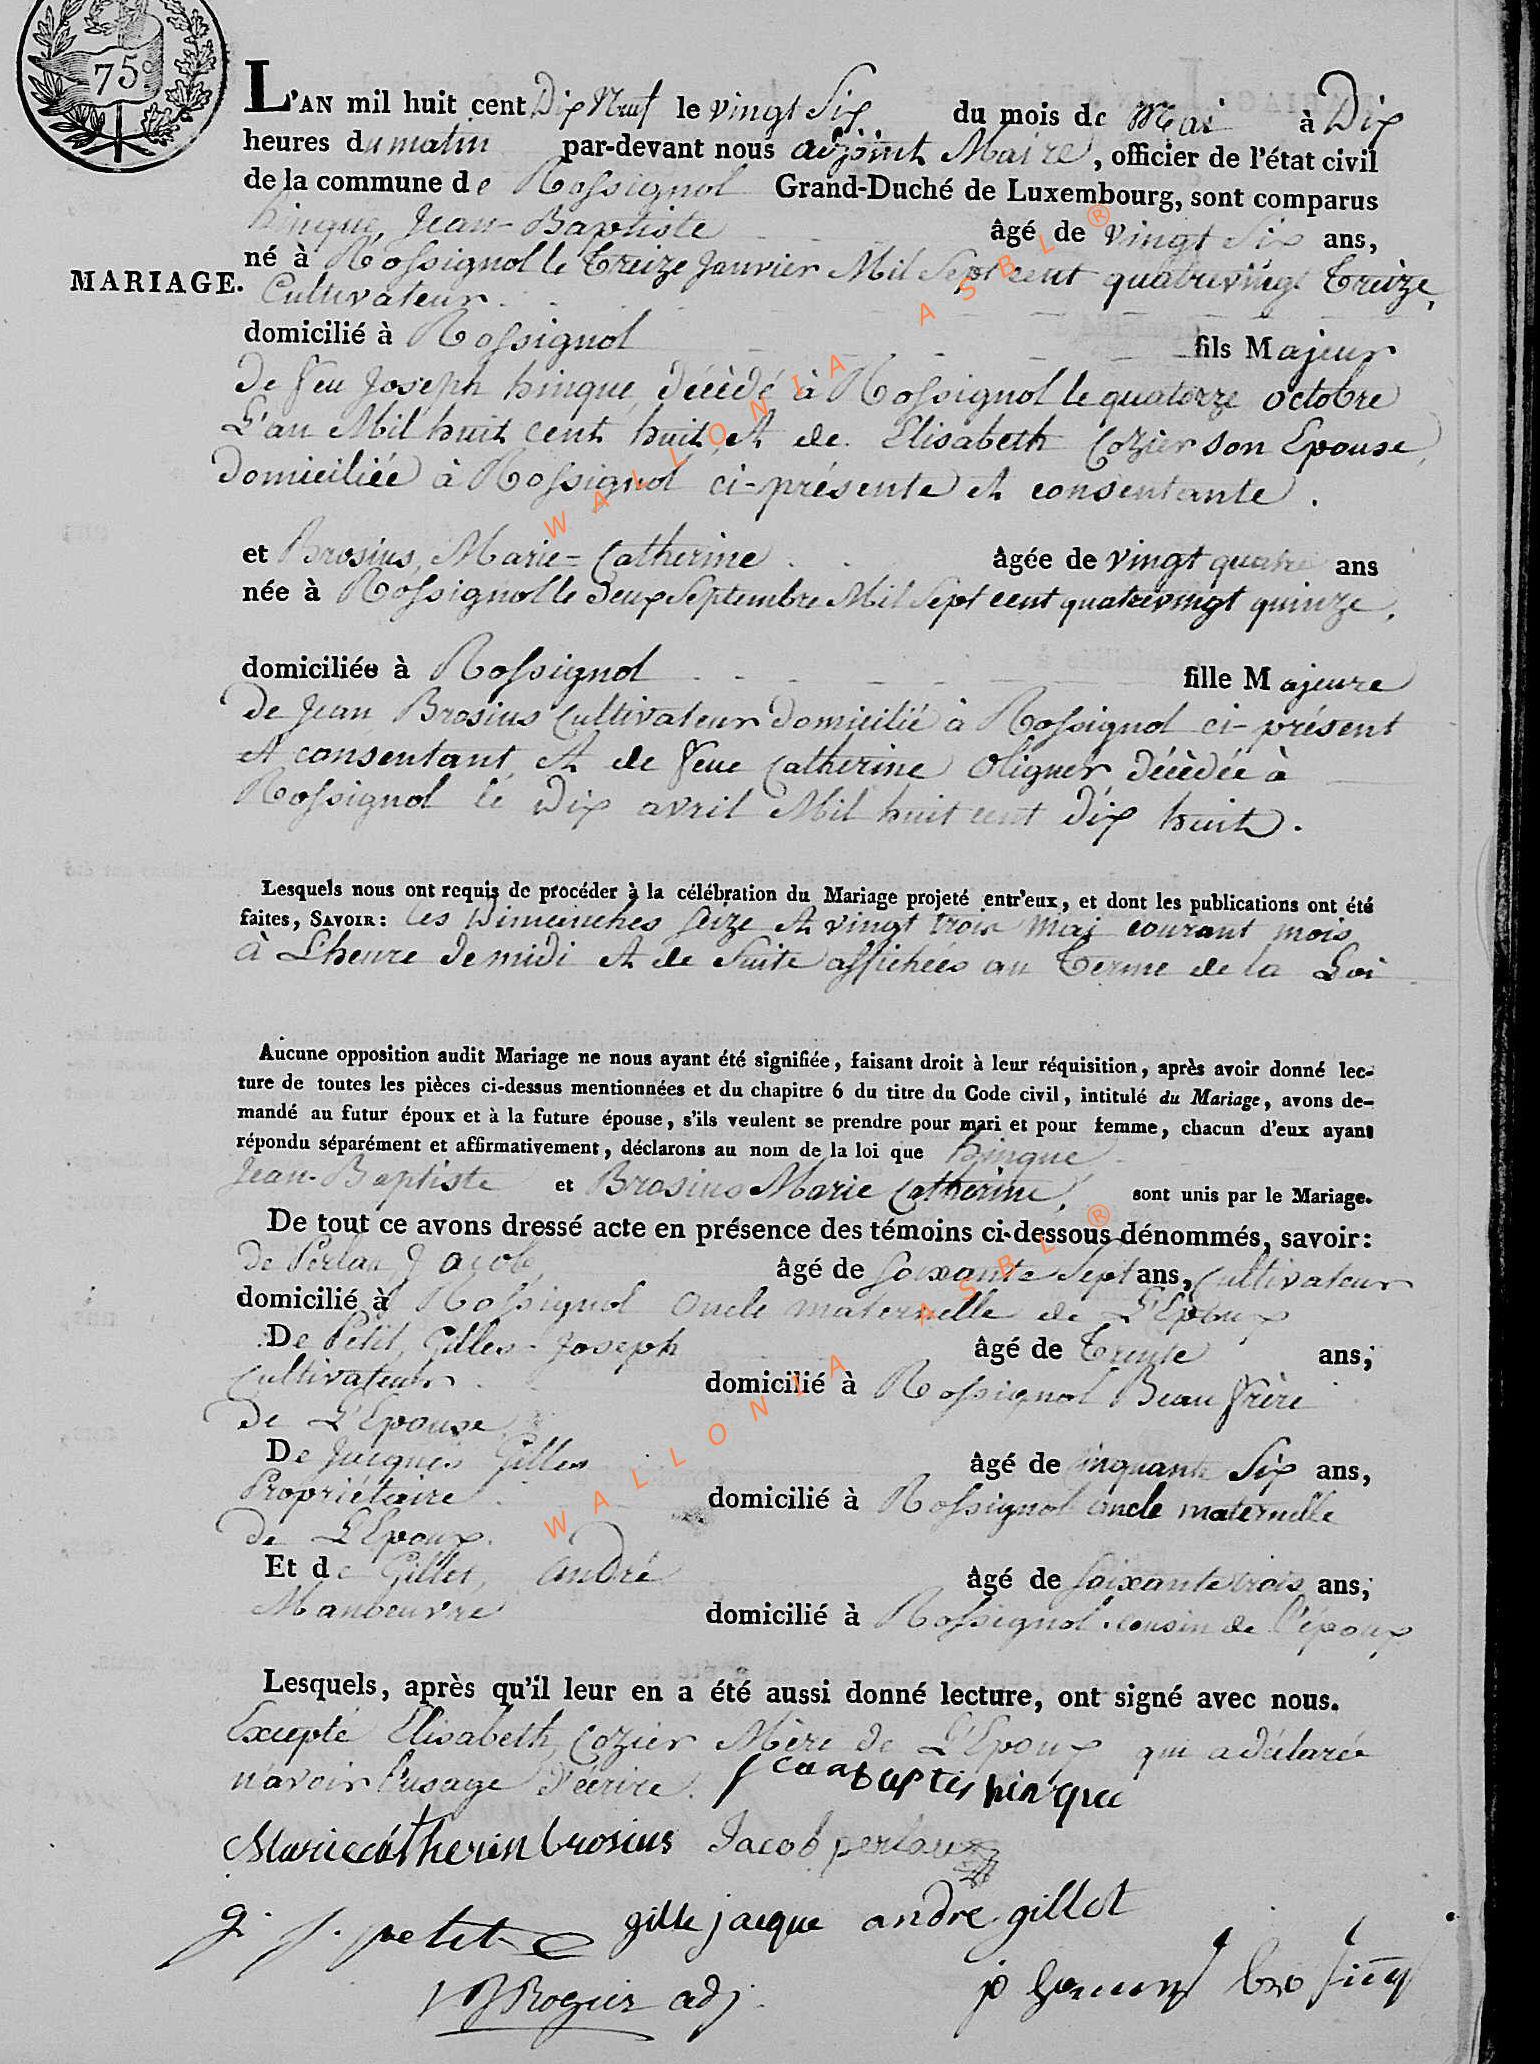 75c
L'AN mil huit cent Dix Neuf le vingt Six du mois de Mai à Dix
heures du matin par-devant nous adjoint Maire, officier de l'état civil
de la commune de Rossignol Grand-Duché de Luxembourg, sont comparus
hinque, Jean-Baptiste âgé de vingt Six ans,
MARIAGE. né à Rossignol le Treize Janvier Mil Sept cent quatrevingt Treize,
Cultivateur
domicilié à Rossignol fils Majeur
de feu Joseph hinque, décèdé à Rossignol le quatorze octobre
L'an Mil huit cent huit, et de Elisabeth Cozier son Epouse,
domiciliée à Rossignol ci-présente et consentante.
et Brosius, Marie-Catherine âgée de vingt quatre ans
née à Rossignol le deux Septembre Mil Sept cent quatrevingt quinze,
domiciliée à Rossignol fille Majeure
de Jean Brosius Cultivateur domicilié à Rossignol ci-présent
et consentant et de feue Catherine Oligner décèdée à
Rossignol le Dix avril Mil huit cent dix huit.
Lesquels nous ont requis de procéder à la célébration du Mariage projeté entr'eux, et dont les publications ont été
faites, SAVOIR: les Dimanches Seize et vingt trois Mai courant mois
à L'heure de midi et de Suite affichées au Terme de la Loi
Aucune opposition audit Mariage ne nous ayant été signifiée, faisant droit à leur réquisition, après avoir donné lec-
ture de toutes les pièces ci-dessus mentionnées et du chapitre 6 du titre du Code civil, intitulé du Mariage, avons de-
mandé au futur époux et à la future épouse, s'ils veulent se prendre pour mari et pour femme, chacun d'eux ayant
répondu séparément et affirmativement, déclarons au nom de la loi que hinque
Jean-Baptiste et Brosius Marie Catherine, sont unis par le Mariage.
De tout ce avons dressé acte en présence des témoins ci-dessous dénommés, savoir:
de Perlau, Jacob, âgé de soixante Sept ans, Cultivateur
domicilié à Rossignol Oncle maternelle de L'Epoux
De Petit, Gilles-Joseph âgé de Trente ans;
Cultivateur domicilié à Rossignol Beau frère
de L'Epouse
De Jacques Gilles âgé de Cinquante Six ans,
Propriétaire domicilié à Rossignol oncle maternelle
de L'Epoux.
Et de Gillet, André âgé de Soixante trois ans;
Manoeuvre domicilié à Rossignol cousin de l'époux
Lesquels, après qu'il leur en a été aussi donné lecture, ont signé avec nous.
Excepté Elisabeth Cozier Mère de L'Epoux qui a déclarée
n'avoir l'usage d'écrire. Jean baptis hinque
Marie catherin brosius Jacob perlau
g. j. petit gille jacque andre gillet
Rogier adj. brosius
WALLONIA ASBL®
WALLONIA ASBL®